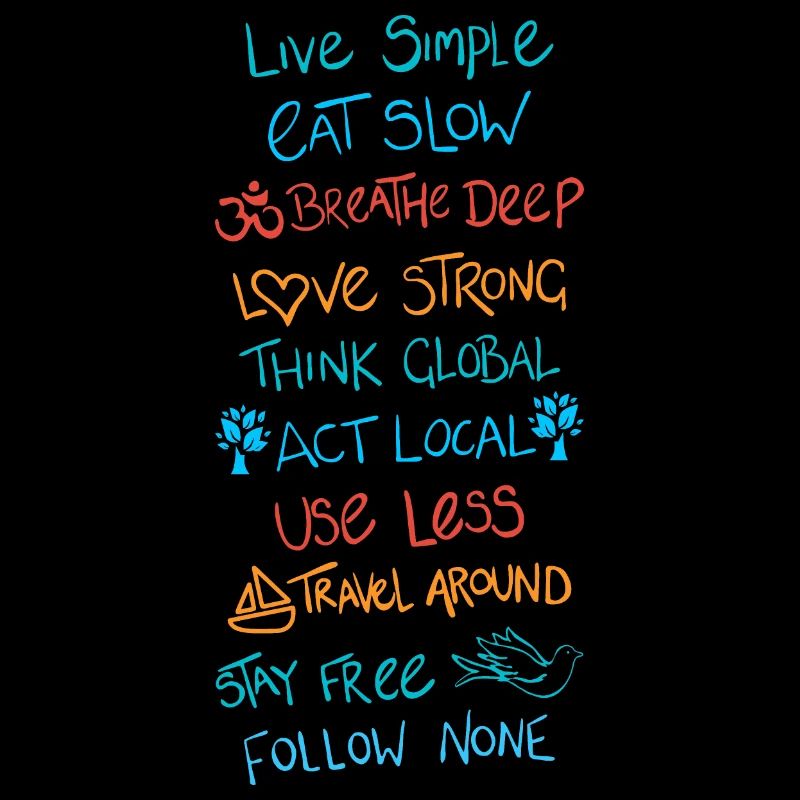 Live Simple
eAT SLOW
ॐ BReATHe DeeP
LOVe STRONG
THINK GLOBAL
ACT LOCAL
USe LeSS
TRAVeL AROUND
STAY FRee
FOLLOW NONE